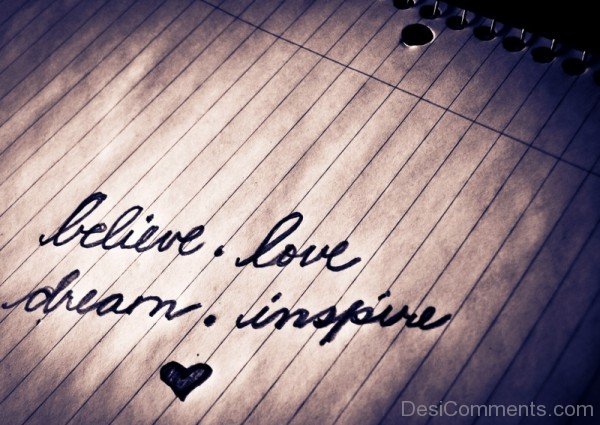 believe. love
dream. inspire
DesiComments.com